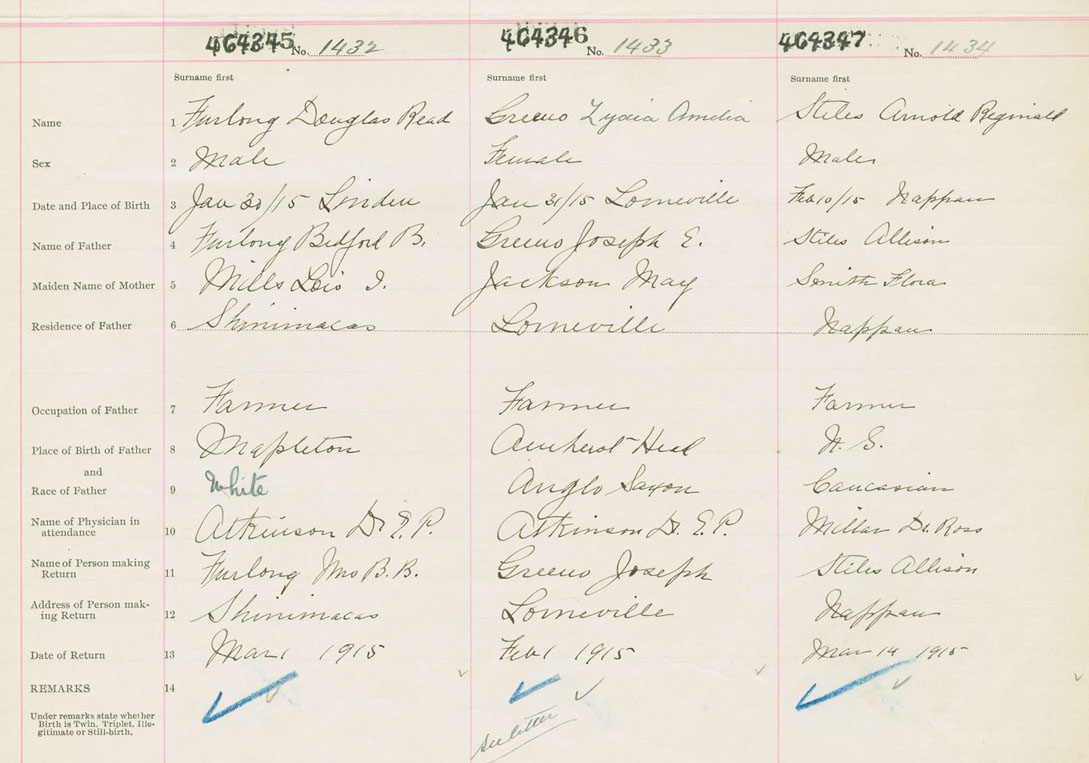 464345 No. 1432 464346 No. 1433 464347 No. 1434
Surname first Surname first Surname first
Name 1 Furlong Douglas Read Greeno Lydia Amelia Stiles Arnold Reginald
Sex 2 Male Female Male
Date and Place of Birth 3 Jan 30/15 Linden Jan 31/15 Lorneville Feb 10/15 Nappan
Name of Father 4 Furlong Bedford B. Greeno Joseph E. Stiles Allison
Maiden Name of Mother 5 Mills Lois I. Jackson May Smith Flora
Residence of Father 6 Shinimacas Lorneville Nappan
Occupation of Father 7 Farmer Farmer Farmer
Place of Birth of Father 8 Mapleton Amherst Head N. S.
and
Race of Father 9 White Anglo Saxon Caucasian
Name of Physician in
attendance 10 Atkinson Dr. E. P. Atkinson Dr. E. P. Millar Dr. Ross
Name of Person making
Return 11 Furlong Mrs B. B. Greeno Joseph Stiles Allison
Address of Person mak-
ing Return 12 Shinimacas Lorneville Nappan
Date of Return 13 Mar 1 1915 Feb 1 1915 Mar 14 1915
REMARKS 14
Under remarks state whether
Birth is Twin. Triplet, Ille-
gitimate or Still-birth.
see letter